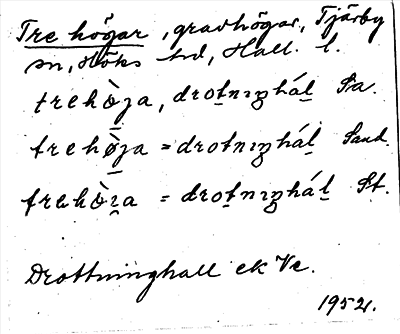 Tre högar, gravhögar, Tjärby
sn, Höks hd, Hall. l.
trehö̀ȷa, drotnıŋhál Pa.
trehø̀ȷa = drotnıŋhál Sand.
trehö̀ı̯a = drotnıŋhál St.
Drottninghall ek Ve.
1952.